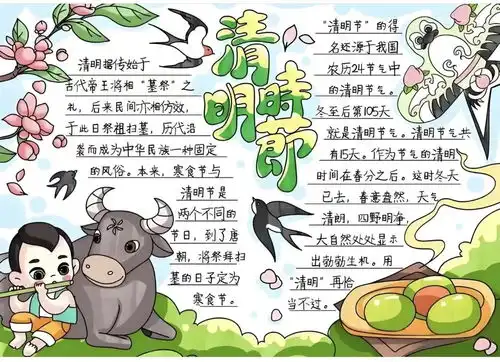 清明時節
清明据传始于
古代帝王将相“墓祭”之
礼，后来民间亦相仿效，
于此日祭祖扫墓，历代沿
袭而成为中华民族一种固定
的风俗。本来，寒食节与
清明节是
两个不同的
节日，到了唐
朝，将祭拜扫
墓的日子定为
寒食节。
“清明节”的得
名还源于我国
农历24节气中
的清明节气。
冬至后第105天
就是清明节气。清明节气共
有15天。作为节气的清明，
时间在春分之后。这时冬天
已去，春意盎然，天气
清朗，四野明净，
大自然处处显示
出勃勃生机。用
“清明”再恰
当不过。